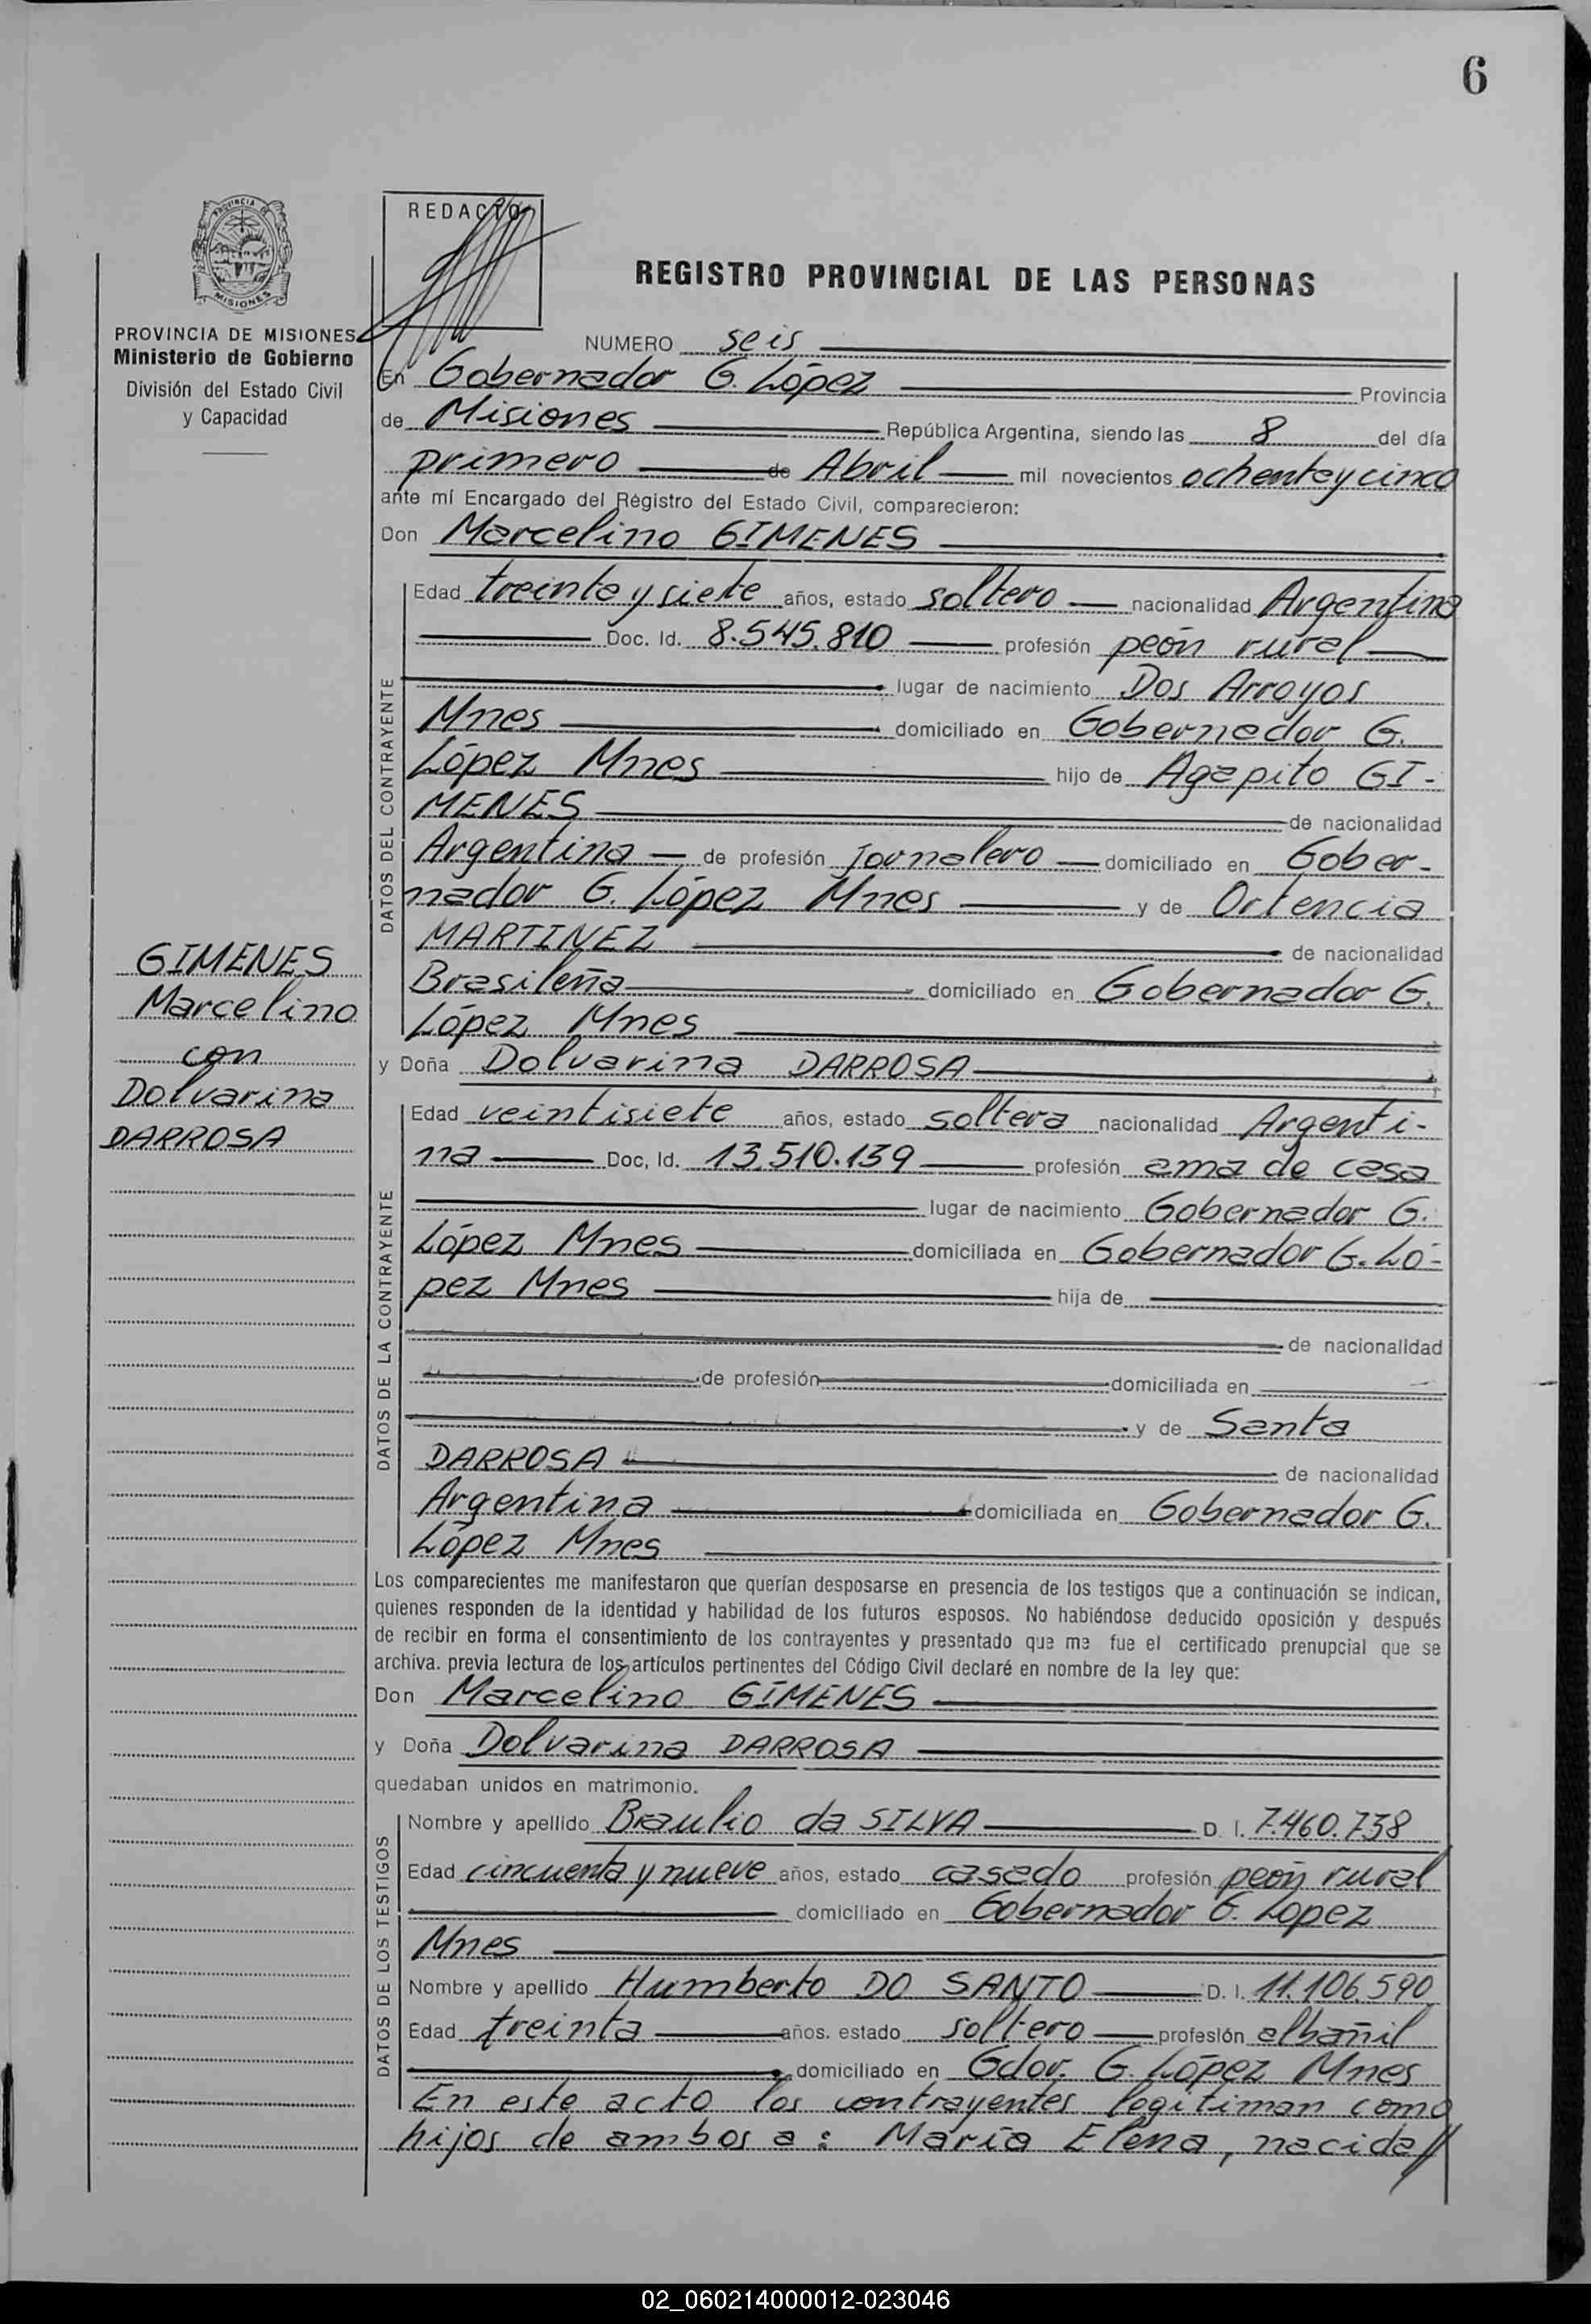 6
PROVINCIA DE
MISIONES
REDACTO
REGISTRO PROVINCIAL DE LAS PERSONAS
PROVINCIA DE MISIONES
Ministerio de Gobierno
División del Estado Civil
y Capacidad
NUMERO seis
En Gobernador G. López Provincia
de Misiones República Argentina, siendo las 8 del día
primero de Abril mil novecientos ochenta y cinco
ante mí Encargado del Régistro del Estado Civil, comparecieron:
Don Marcelino GIMENES
DATOS DEL CONTRAYENTE
Edad treinta y siete años, estado soltero nacionalidad Argentina
Doc. Id. 8.545.810 profesión peón rural
lugar de nacimiento Dos Arroyos
Mnes domiciliado en Gobernador G.
López Mnes hijo de Agapito GI-
MENES de nacionalidad
Argentina de profesión Jornalero domiciliado en Gober-
nador G. López Mnes y de Ortencia
MARTINEZ de nacionalidad
Brasileña domiciliado en Gobernador G.
López Mnes
GIMENES
Marcelino
con
Dolvarina
DARROSA
y Doña Dolvarina DARROSA
DATOS DE LA CONTRAYENTE
Edad veintisiete años, estado soltera nacionalidad Argenti-
na Doc, Id. 13.510.139 profesión ama de casa
lugar de nacimiento Gobernador G.
López Mnes domiciliada en Gobernador G. Ló-
pez Mnes hija de
de nacionalidad
de profesión domiciliada en
y de Santa
DARROSA de nacionalidad
Argentina domiciliada en Gobernador G.
López Mnes
Los comparecientes me manifestaron que querían desposarse en presencia de los testigos que a continuación se indican,
quienes responden de la identidad y habilidad de los futuros esposos. No habiéndose deducido oposición y después
de recibir en forma el consentimiento de los contrayentes y presentado que me fue el certificado prenupcial que se
archiva. previa lectura de los artículos pertinentes del Código Civil declaré en nombre de la ley que:
Don Marcelino GIMENES
y Doña Dolvarina DARROSA
quedaban unidos en matrimonio.
DATOS DE LOS TESTIGOS
Nombre y apellido Braulio da SILVA D. I. 7.460.738
Edad cincuenta y nueve años, estado casado profesión peón rural
domiciliado en Gobernador G. Lopez
Mnes
Nombre y apellido Humberto DO SANTO D. I. 11.106.590
Edad treinta años. estado soltero profesión albañil
domiciliado en Gdor. G. López Mnes
En este acto los contrayentes legitiman como
hijos de ambos a: María Elena, nacida//
02_060214000012-023046